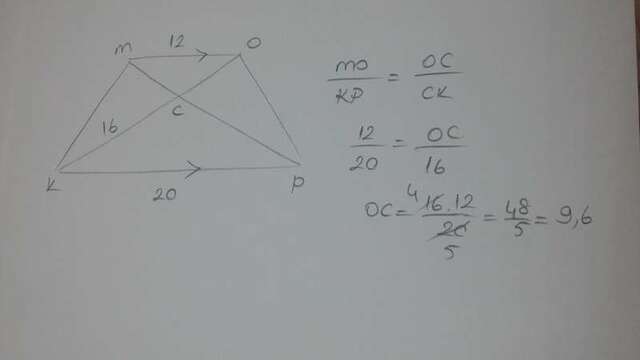 M 12 O
16 C
K 20 P
MO/KP = OC/CK
12/20 = OC/16
OC = 4 16.12/20 5 = 48/5 = 9,6